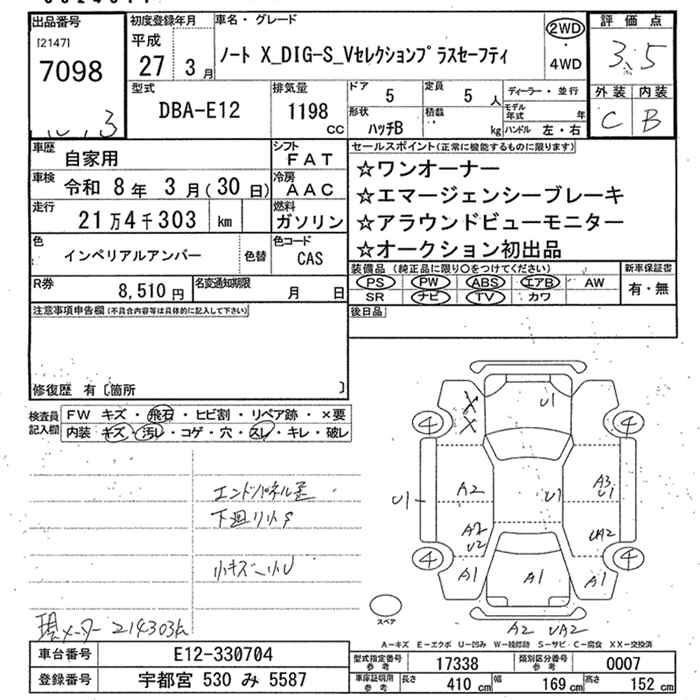 出品番号 初度登録年月 車名・グレード 評価点
[2147] 平成 2WD
7098 27年 3月 ノート X_DIG-S_Vセレクションプラスセーフティ ・ 3.5
4WD
型式 排気量 ドア 定員 ディーラー・並行 外装 内装
DBA-E12 1198 cc 5 5人 モデル年式 年 C B
形状 積載
ハッチB kg ハンドル 左・右
車歴 自家用 シフト FAT セールスポイント(正常に機能するものに限ります)
車検 令和 8年 3月(30日) 冷房 AAC ☆ワンオーナー
走行 21万4千303 km 燃料 ガソリン ☆エマージェンシーブレーキ
☆アラウンドビューモニター
色 インペリアルアンバー 色替 色コード CAS ☆オークション初出品
R券 8,510円 名変通知期限 月 日 装備品(純正品に限り○をつけてください) 新車保証書
PS PW ABS エアB AW 有・無
SR ナビ TV カワ
注意事項申告欄(不具合内容等は具体的に記入して下さい) 後日品
修復歴 有〔箇所 〕
検査員記入欄 FW キズ・飛石・ヒビ割・リペア跡・×要
内装 キズ・汚レ・コゲ・穴・スレ・キレ・破レ
U1
X
X
4 4
A2 U1 A3
U1 U1
A2 UA2
U2
4 4
A1 A1 A1
スペア
A2 UA2
エンドパネル歪
下廻りサビ
小キズ小U
現メーター 214303k
A-キズ E-エクボ U-凹み W-補修跡 S-サビ C-腐食 XX-交換済
車台番号 E12-330704 型式指定番号 参考 17338 類別区分番号 参考 0007
登録番号 宇都宮 530 み 5587 車庫証明用 参考 長さ 410 cm 幅 169 cm 高さ 152 cm